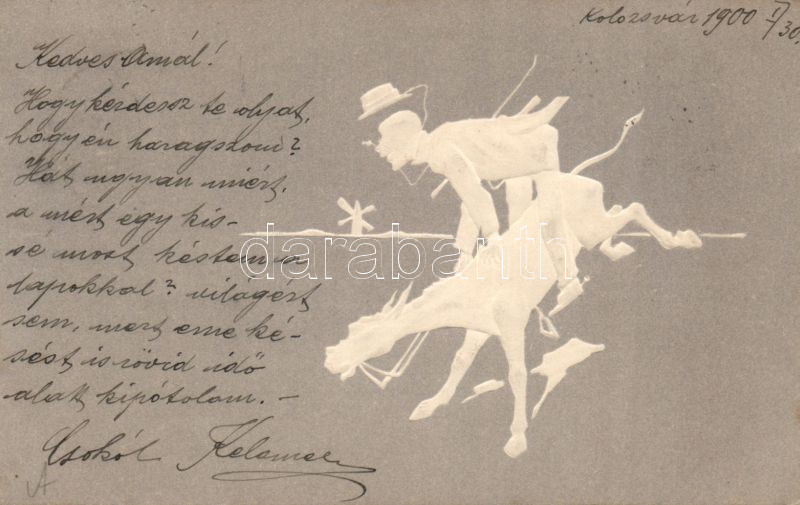 Kolozsvár 1900 I/30.
Kedves Amál!
Hogy kérdessz te olyat,
hogy én haragszom?
Hát ugyan miért,
a mért egy kis-
sé most késtem a
lapokkal? világért
sem, mert eme ké-
sést is rövid idő
alatt kipótolom. -
Csokól
darabanth